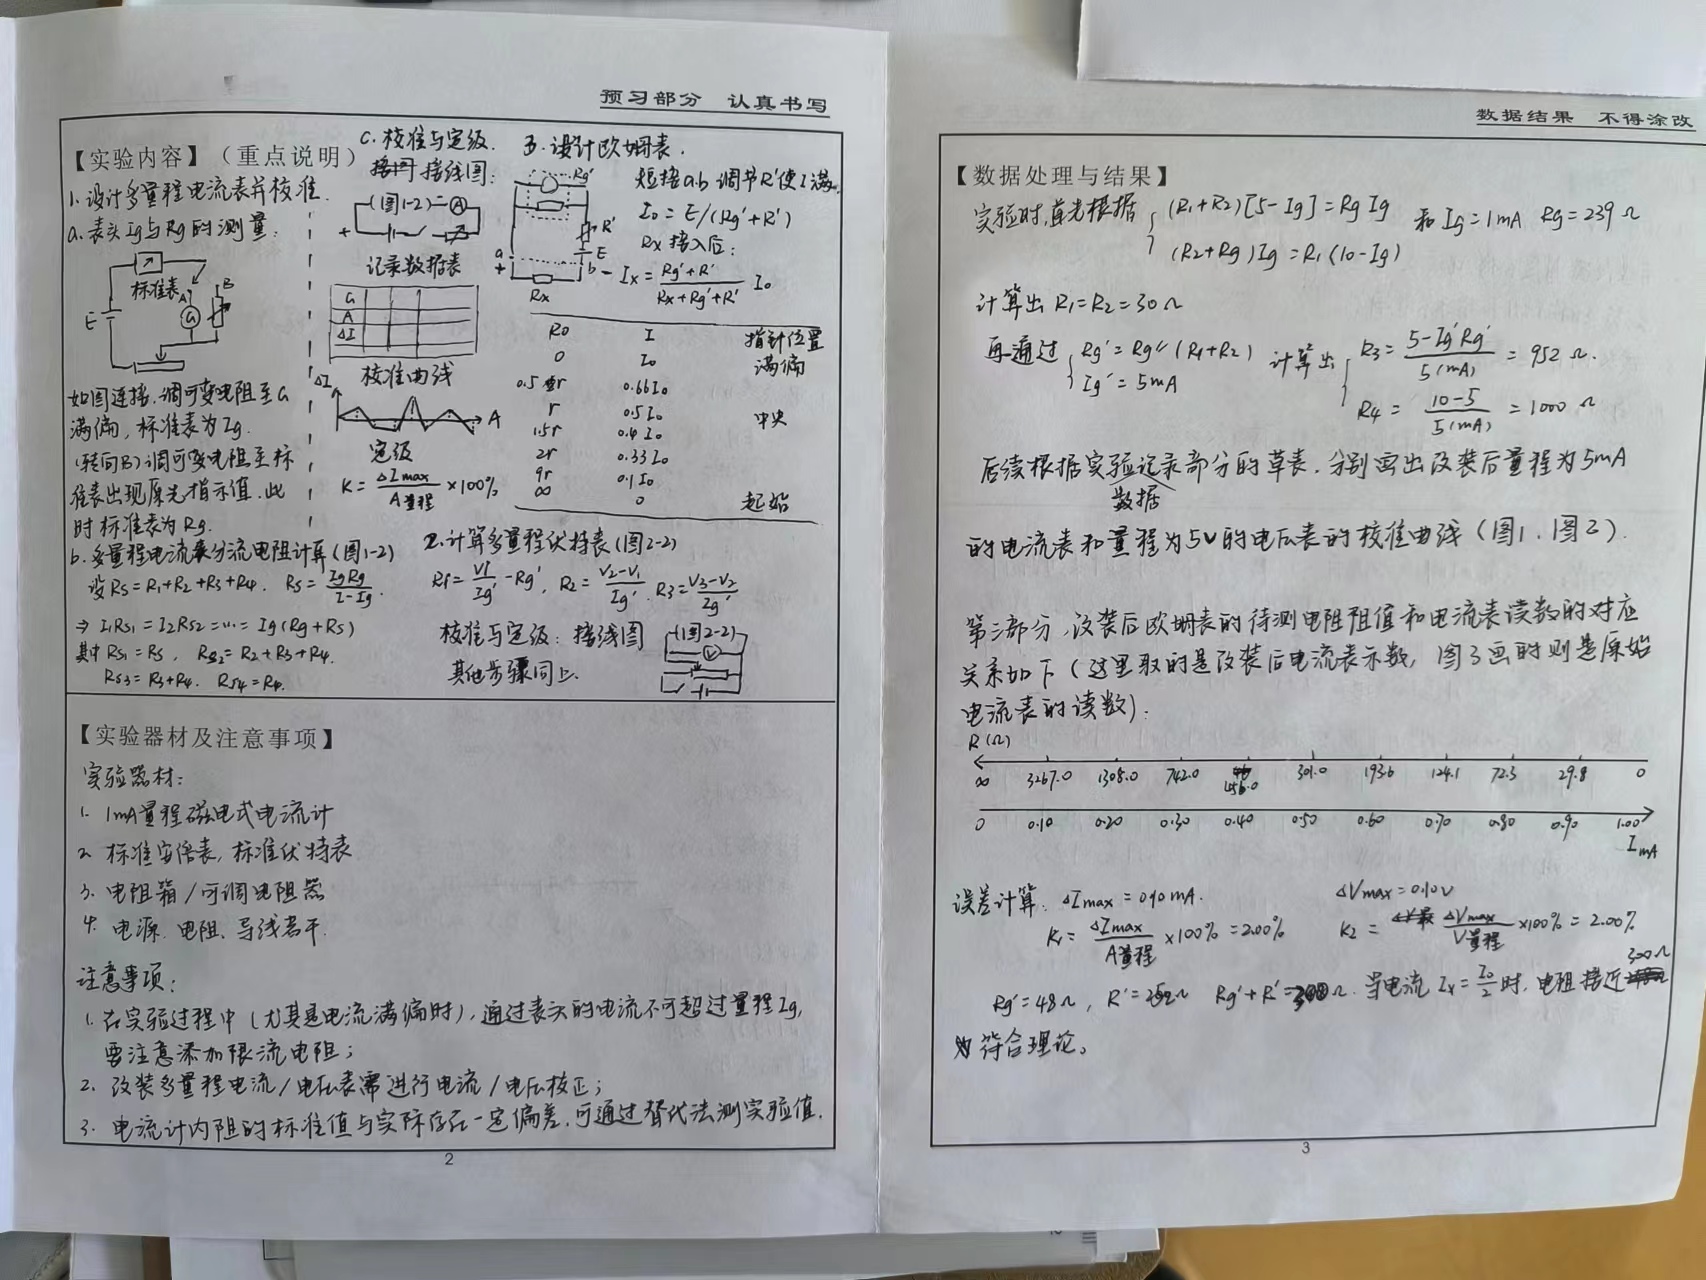 预习部分 认真书写
【实验内容】（重点说明）
1. 设计多量程电流表并校准.
a. 表头Ig与Rg的测量.
标准表
A
B
G
E
如图连接.调可变电阻至G
满偏，标准表为Ig.
(转向B)调可变电阻至标
准表出现原先指示值.此
时标准表为Rg.
b. 多量程电流表分流电阻计算(图1-2)
设Rs=R1+R2+R3+R4. Rs=IgRg/(I-Ig).
⇒ I1Rs1=I2Rs2=…=Ig(Rg+Rs)
其中Rs1=Rs, Rs2=R2+R3+R4.
Rs3=R3+R4. Rs4=R4.
C. 校准与定级.
接线图:
(图1-2) A
+
记录数据表
G
A
ΔI
校准曲线
ΔI
A
定级
K=ΔImax/A量程×100%
2.计算多量程伏特表(图2-2)
R1=V1/Ig'-Rg', R2=(V2-V1)/Ig'. R3=(V3-V2)/Ig'
校准与定级: 接线图
其他步骤同上.
(图2-2)
V
3. 设计欧姆表.
Rg'
R'
E
a
b
+
-
Rx
短接a.b调节R'使I满.
I0=E/(Rg'+R')
Rx接入后:
Ix=(Rg'+R')/(Rx+Rg'+R') I0
R0 I 指针位置
0 I0 满偏
0.5r 0.66I0
r 0.5I0 中央
1.5r 0.4I0
2r 0.33I0
9r 0.1I0
∞ 0 起始
【实验器材及注意事项】
实验器材:
1. 1mA量程磁电式电流计
2. 标准安倍表, 标准伏特表
3. 电阻箱/可调电阻器
4. 电源. 电阻. 导线若干.
注意事项:
1. 在实验过程中(尤其是电流满偏时), 通过表头的电流不可超过量程Ig,
要注意添加限流电阻;
2. 改装多量程电流/电压表需进行电流/电压校正;
3. 电流计内阻的标准值与实际存在一定偏差.可通过替代法测实验值.
2
数据结果 不得涂改
【数据处理与结果】
实验时,首先根据 (R1+R2)[5-Ig]=RgIg 和Ig=1mA Rg=239Ω
(R2+Rg)Ig=R1(10-Ig)
计算出R1=R2=30Ω
再通过 Rg'=Rg∥(R1+R2) 计算出 R3=(5-Ig'Rg')/5(mA)=952Ω.
Ig'=5mA R4=(10-5)/5(mA)=1000Ω
后续根据实验记录部分的草表.分别画出改装后量程为5mA
数据
的电流表和量程为5V的电压表的校准曲线(图1.图2).
第三部分,改装后欧姆表的待测电阻阻值和电流表读数的对应
关系如下(这里取的是改装后电流表示数, 图3画的则是原始
电流表的读数).
R(Ω)
∞ 3267.0 1308.0 742.0 456.0 301.0 193.6 124.1 72.3 29.8 0
0 0.10 0.20 0.30 0.40 0.50 0.60 0.70 0.80 0.90 1.00
I mA
误差计算. ΔImax=0.10mA. ΔVmax=0.10V
K1=ΔImax/A量程×100%=2.00% K2=ΔVmax/V量程×100%=2.00%
Rg'=48Ω, R'=252Ω Rg'+R'=300Ω. 当电流Ix=I0/2时,电阻接近300Ω
符合理论。
3